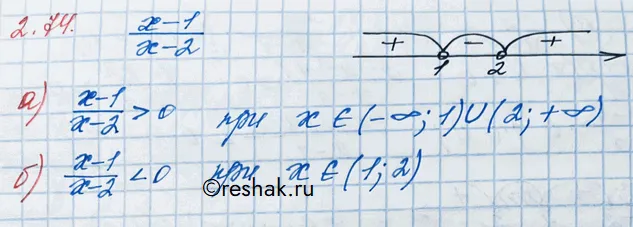 2.74. (x-1)/(x-2)
+ - +
1 2
а) (x-1)/(x-2) > 0 при x ∈ (-∞; 1) ∪ (2; +∞)
б) (x-1)/(x-2) < 0 при x ∈ (1; 2)
©reshak.ru